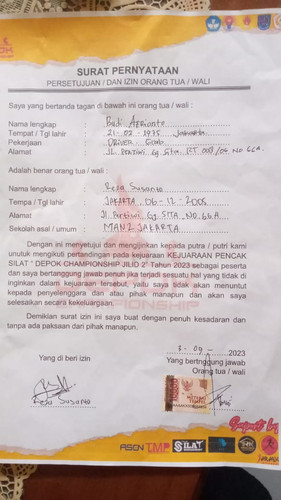 SURAT PERNYATAAN
PERSETUJUAN / DAN IZIN ORANG TUA / WALI
Saya yang bertanda tangan di bawah ini orang tua / wali :
Nama lengkap : Budi Aprianto
Tempat / Tgl lahir : 21-02-1975 Jakarta
Pekerjaan : DRIVER
Alamat : JL. Pertiwi Gg. Sita. RT 009/06 NO 66A.
Adalah benar orang tua / wali :
Nama lengkap : Reza Susanto
Tempa / Tgl lahir : JAKARTA, 06-12-2005
Alamat : Jl. Pertiwi Gg. SITA, NO. 66A.
Sekolah asal / umum : MAN 2 JAKARTA
Dengan ini menyetujui dan mengijinkan kepada putra / putri kami
unutuk mengikuti pertandingan pada kejuaraan KEJUARAAN PENCAK
SILAT " DEPOK CHAMPIONSHIP JILID 2" Tahun 2023 sebagai peserta
dan saya bertanggung jawab penuh jika terjadi sesuatu hal yang tidak di
inginkan dalam kejuaraan tersebut, yaitu saya tidak akan menuntut
kepada penyelenggara dan atau pihak manapun dan akan saya
selesaikan secara kekeluargaan.
Demikian surat izin ini saya buat dengan penuh kesadaran dan
tanpa ada paksaan dari pihak manapun.
2023
Yang di beri izin
Yang bertnggung jawab
Orang tua / wali
Reza Susanto
Support by
ASEN TMP SILAT